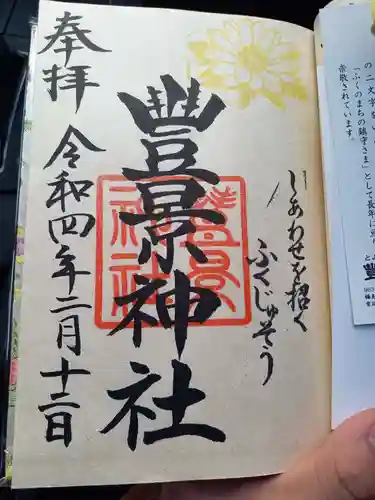 の二文字をい
「ふくのまちの鎮守さま」として長年に
崇敬されています。
しあわせを招く
ふくじゅそう
豐景神社
豐景
神社
奉拝
令和四年二月十二日